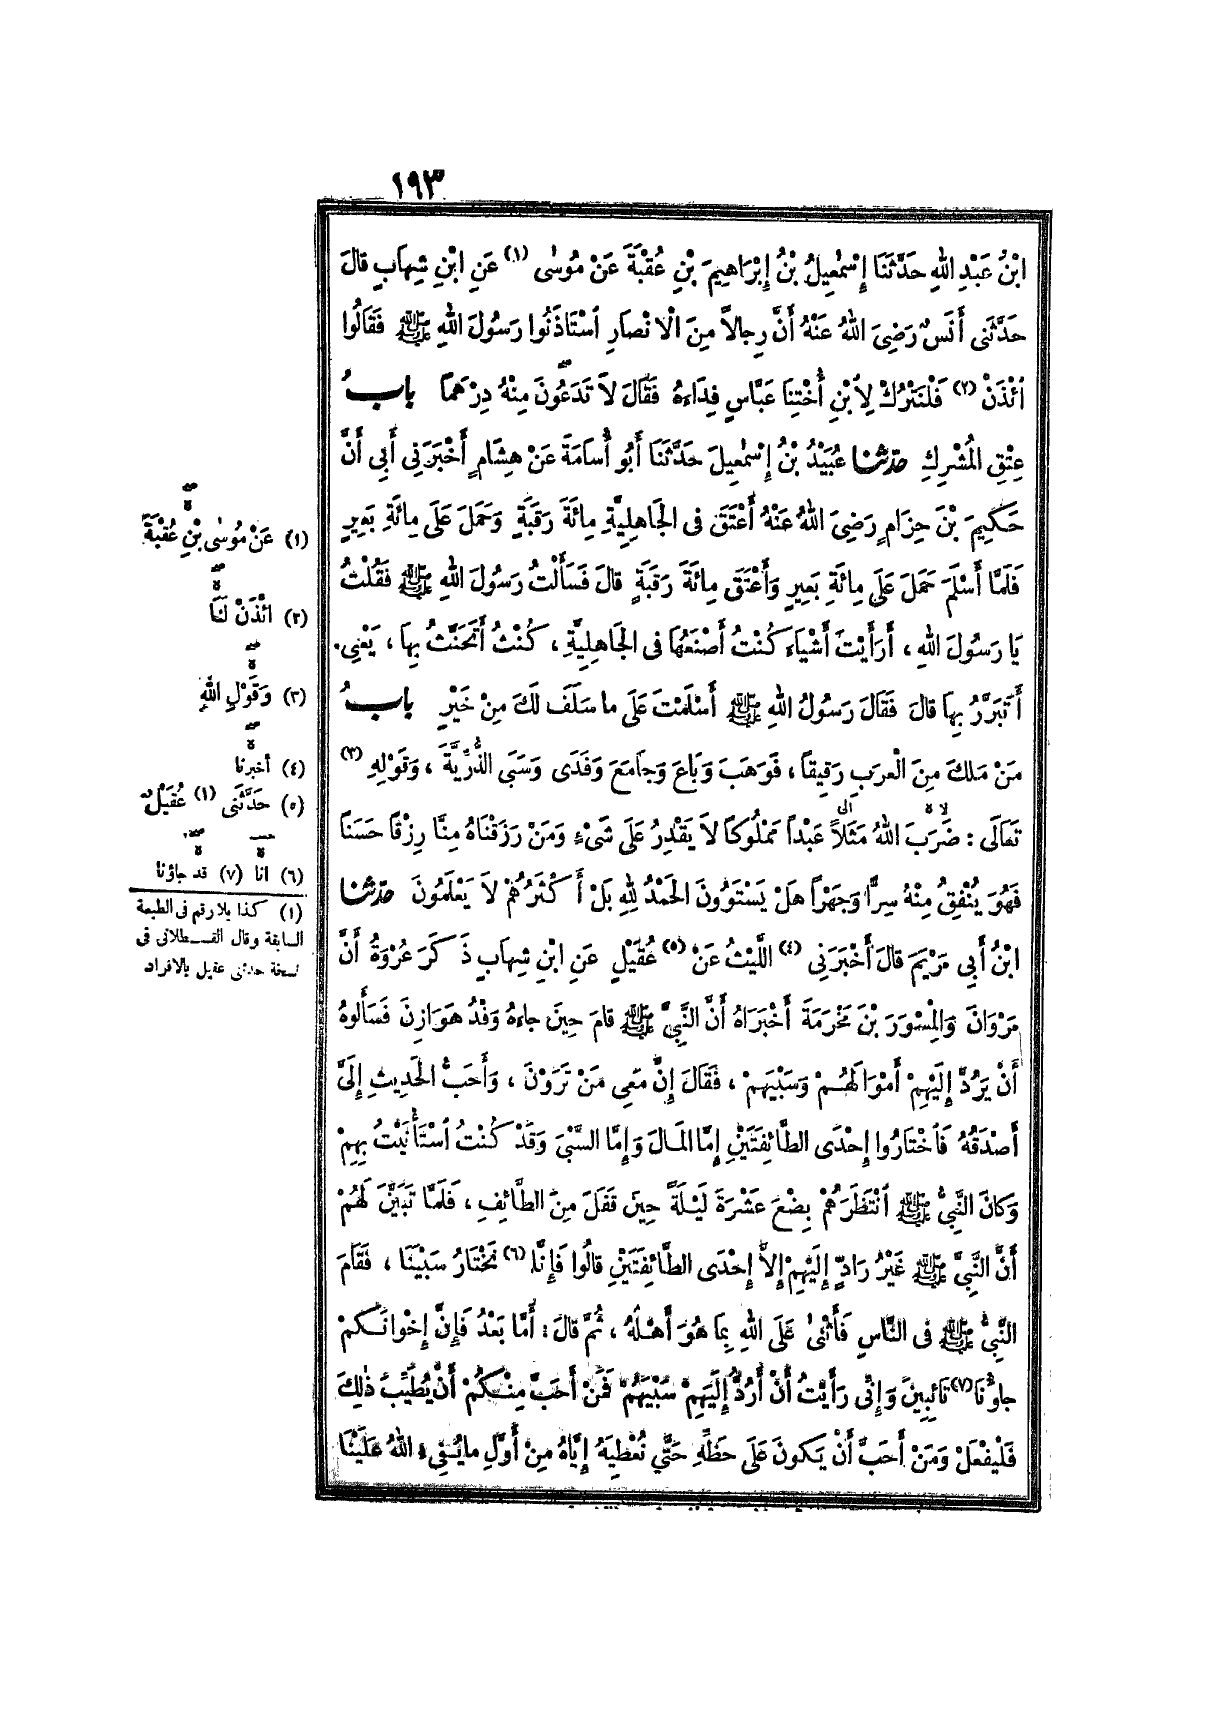 ١٩٣
ابْنُ عَبْدِ اللهِ حَدَّثَنَا إِسْمٰعِيلُ بْنُ إِبْرَاهِيمَ بْنِ عُقْبَةَ عَنْ مُوسٰى (١) عَنِ ابْنِ شِهَابٍ قَالَ
حَدَّثَنِي أَنَسٌ رَضِيَ اللهُ عَنْهُ أَنَّ رِجَالاً مِنَ الْأَنْصَارِ اسْتَأْذَنُوا رَسُولَ اللهِ ﷺ فَقَالُوا
ائْذَنْ (٢) فَلْنَتْرُكْ لِابْنِ أُخْتِنَا عَبَّاسٍ فِدَاءَهُ فَقَالَ لاَ تَدَعُونَ مِنْهُ دِرْهَمًا بابُ
عِتْقِ الْمُشْرِكِ حَدَّثَنَا عُبَيْدُ بْنُ إِسْمٰعِيلَ حَدَّثَنَا أَبُو أُسَامَةَ عَنْ هِشَامٍ أَخْبَرَنِي أَبِي أَنَّ
حَكِيمَ بْنَ حِزَامٍ رَضِيَ اللهُ عَنْهُ أَعْتَقَ فِي الْجَاهِلِيَّةِ مِائَةَ رَقَبَةٍ وَحَمَلَ عَلَى مِائَةِ بَعِيرٍ
فَلَمَّا أَسْلَمَ حَمَلَ عَلَى مِائَةِ بَعِيرٍ وَأَعْتَقَ مِائَةَ رَقَبَةٍ قَالَ فَسَأَلْتُ رَسُولَ اللهِ ﷺ فَقُلْتُ
يَا رَسُولَ اللهِ ، أَرَأَيْتَ أَشْيَاءَ كُنْتُ أَصْنَعُهَا فِي الْجَاهِلِيَّةِ ، كُنْتُ أَتَحَنَّثُ بِهَا ، يَعْنِي
أَتَبَرَّرُ بِهَا قَالَ فَقَالَ رَسُولُ اللهِ ﷺ أَسْلَمْتَ عَلَى مَا سَلَفَ لَكَ مِنْ خَيْرٍ بابُ
مَنْ مَلَكَ مِنَ الْعَرَبِ رَقِيقًا ، فَوَهَبَ وَبَاعَ وَجَامَعَ وَفَدَى وَسَبَى الذُّرِّيَّةَ ، وَقَوْلِهِ (٣)
تَعَالَى : ضَرَبَ اللهُ مَثَلاً عَبْداً مَمْلُوكًا لاَ يَقْدِرُ عَلَى شَيْءٍ وَمَنْ رَزَقْنَاهُ مِنَّا رِزْقًا حَسَنًا
فَهُوَ يُنْفِقُ مِنْهُ سِرًّا وَجَهْرًا هَلْ يَسْتَوُونَ الْحَمْدُ لِلهِ بَلْ أَكْثَرُهُمْ لاَ يَعْلَمُونَ حَدَّثَنَا
ابْنُ أَبِي مَرْيَمَ قَالَ أَخْبَرَنِي (٤) اللَّيْثُ عَنْ (٥) عُقَيْلٍ عَنِ ابْنِ شِهَابٍ ذَكَرَ عُرْوَةُ أَنَّ
مَرْوَانَ وَالْمِسْوَرَ بْنَ مَخْرَمَةَ أَخْبَرَاهُ أَنَّ النَّبِيَّ ﷺ قَامَ حِينَ جَاءَهُ وَفْدُ هَوَازِنَ فَسَأَلُوهُ
أَنْ يَرُدَّ إِلَيْهِمْ أَمْوَالَهُمْ وَسَبْيَهُمْ ، فَقَالَ إِنَّ مَعِي مَنْ تَرَوْنَ ، وَأَحَبُّ الْحَدِيثِ إِلَيَّ
أَصْدَقُهُ فَاخْتَارُوا إِحْدَى الطَّائِفَتَيْنِ إِمَّا الْمَالَ وَإِمَّا السَّبْيَ وَقَدْ كُنْتُ اسْتَأْنَيْتُ بِهِمْ
وَكَانَ النَّبِيُّ ﷺ انْتَظَرَهُمْ بِضْعَ عَشْرَةَ لَيْلَةً حِينَ قَفَلَ مِنَ الطَّائِفِ ، فَلَمَّا تَبَيَّنَ لَهُمْ
أَنَّ النَّبِيَّ ﷺ غَيْرُ رَادٍّ إِلَيْهِمْ إِلاَّ إِحْدَى الطَّائِفَتَيْنِ قَالُوا فَإِنَّا (٦) نَخْتَارُ سَبْيَنَا ، فَقَامَ
النَّبِيُّ ﷺ فِي النَّاسِ فَأَثْنَىٰ عَلَى اللهِ بِمَا هُوَ أَهْلُهُ ، ثُمَّ قَالَ : أَمَّا بَعْدُ فَإِنَّ إِخْوَانَكُمْ
جَاؤُنَا (٧) تَائِبِينَ وَإِنِّي رَأَيْتُ أَنْ أَرُدَّ إِلَيْهِمْ سَبْيَهُمْ فَمَنْ أَحَبَّ مِنْكُمْ أَنْ يُطَيِّبَ ذٰلِكَ
فَلْيَفْعَلْ وَمَنْ أَحَبَّ أَنْ يَكُونَ عَلَى حَظِّهِ حَتَّى نُعْطِيَهُ إِيَّاهُ مِنْ أَوَّلِ مَا يُفِيءُ اللهُ عَلَيْنَا
(١) عَنْ مُوسٰى بْنِ عُقْبَةَ
(٢) ائْذَنْ لَنَا
(٣) وَقَوْلِ اللهِ
(٤) أخبرنا
(٥) حَدَّثَنِي (١) عُقَيْلٌ
(٦) انا (٧) قد جاؤنا
(١) كذا بلا رقم في الطبعة
السابقة وقال القسطلاني في
نسخة حدثني عقيل بالافراد